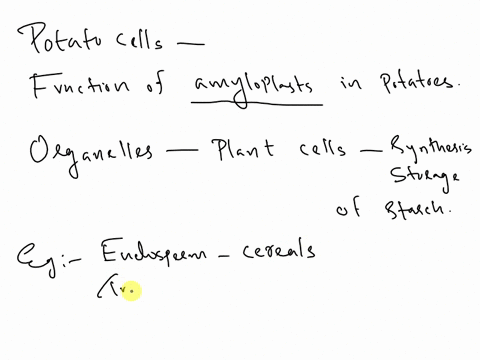 Potato cells —
Function of amyloplasts in potatoes.
Organelles — Plant cells — Synthesis
Storage
of starch.
Eg:- Endosperm - cereals